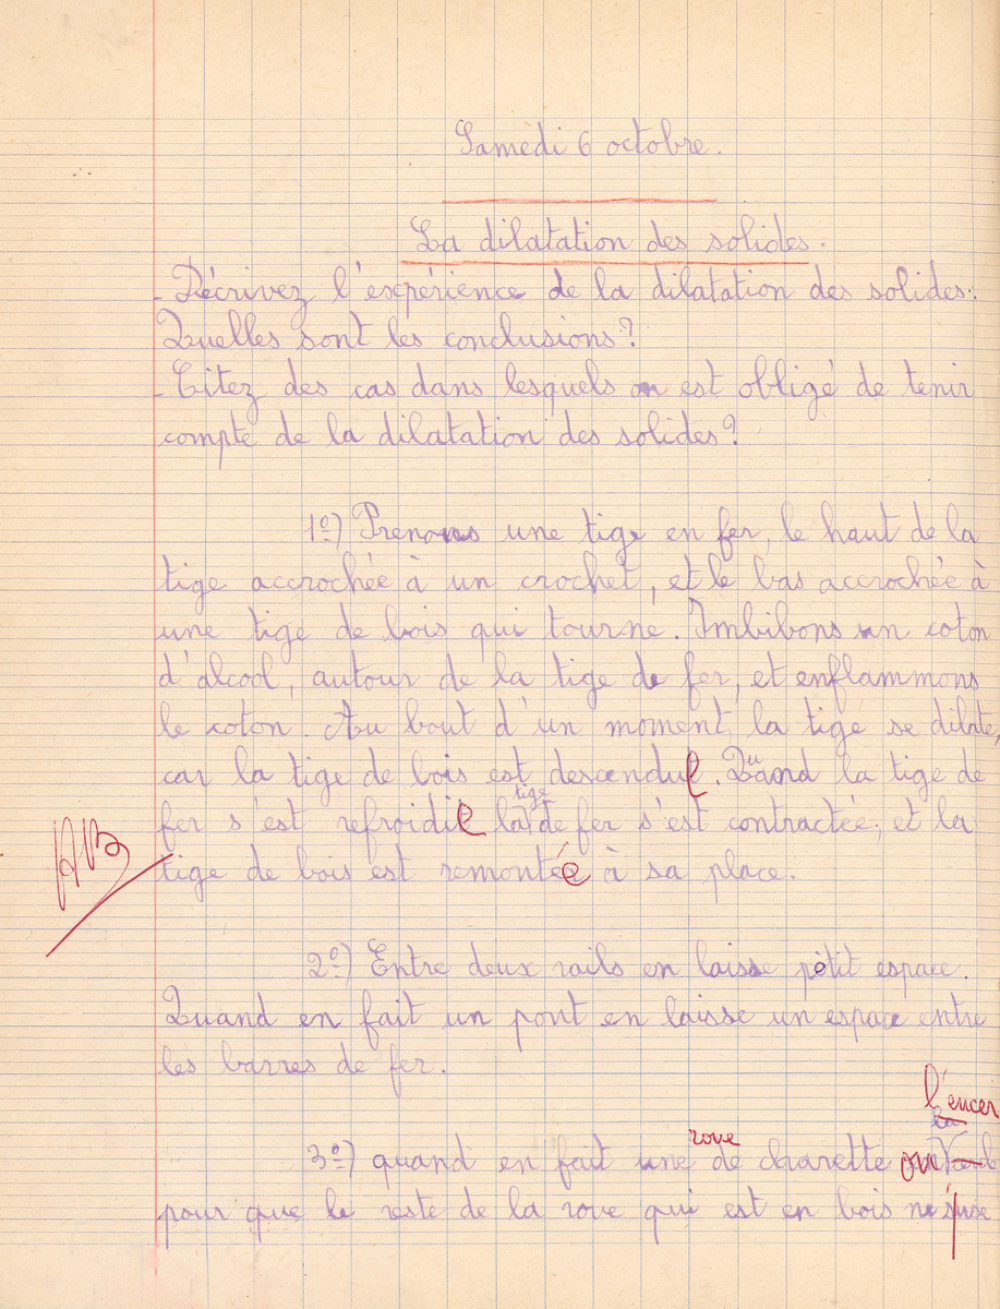 Samedi 6 octobre.
La dilatation des solides.
- Décrivez l'expérience de la dilatation des solides.
Quelles sont les conclusions?
- Citez des cas dans lesquels on est obligé de tenir
compte de la dilatation des solides?
1º) Prenons une tige en fer, le haut de la
tige accrochée à un crochet, et le bas accrochée à
une tige de bois qui tourne. Imbibons un coton
d'alcool, autour de la tige de fer, et enflammons
le coton. Au bout d'un moment la tige se dilate,
car la tige de bois est descendue. Quand la tige de
tige
fer s'est refroidie la de fer s'est contractée, et la
AB
tige de bois est remontée à sa place.
2º) Entre deux rails en laisse petit espace.
Quand en fait un pont en laisse un espace entre
les barres de fer.
l'encer
roue
3º) quand en fait une de charette on
pour que le reste de la roue qui est en bois ne s'use